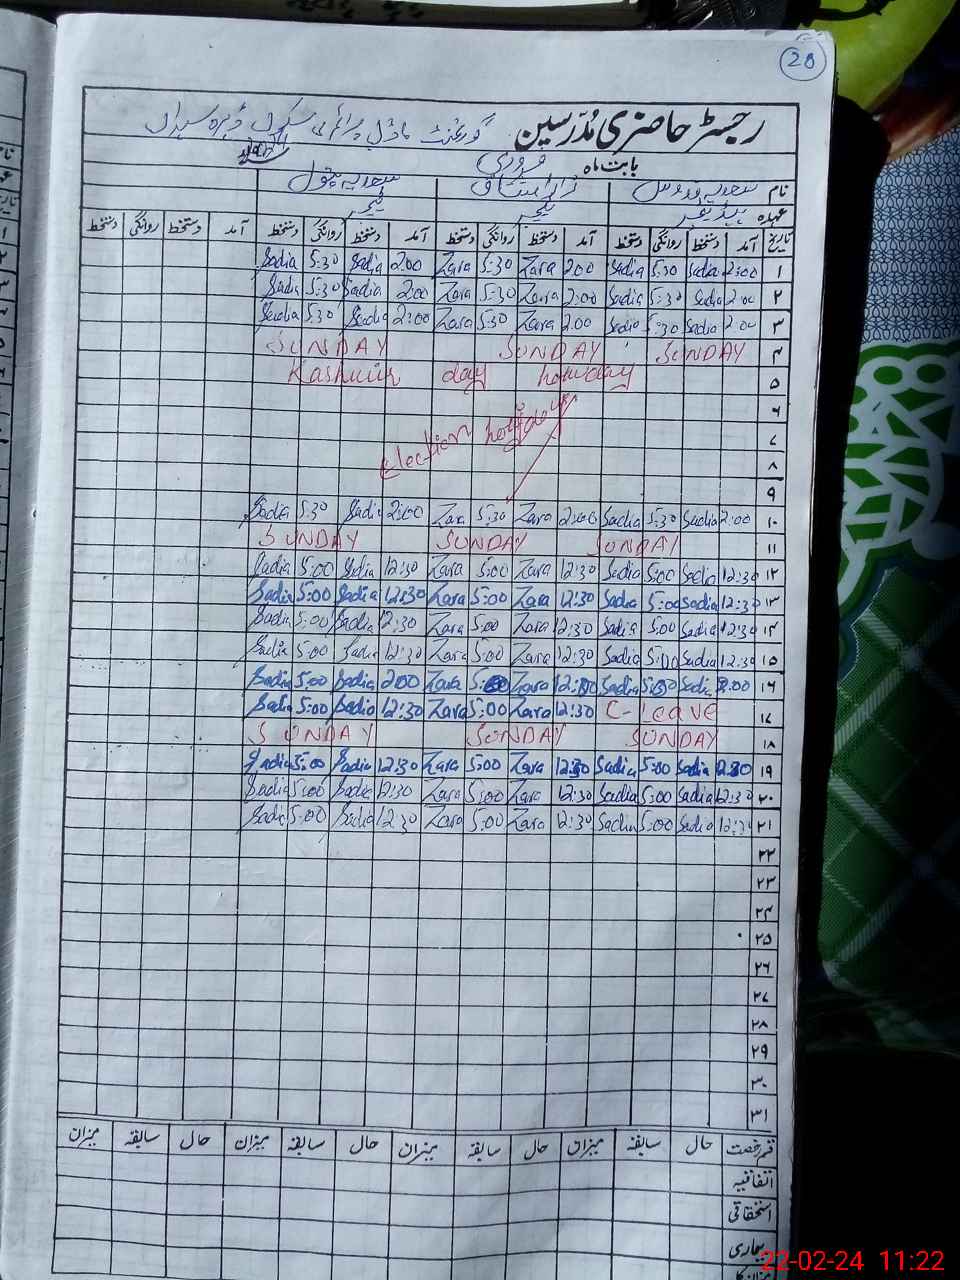 28
رجسٹر حاضری مُدرّسین گورنمنٹ ماڈل پرائمری سکول ڈیرہ سیداں
بابت ماہ فروری
نام سعدیہ فردوس زارا مشتاق سعدیہ بتول
عہدہ ہیڈ ٹیچر ٹیچر ٹیچر
تاریخ آمد دستخط روانگی دستخط آمد دستخط روانگی دستخط آمد دستخط روانگی دستخط آمد دستخط روانگی دستخط
۱ 2:00 Sadia 5:30 Sadia 2:00 Zara 5:30 Zara 2:00 Sadia 5:30 Sadia
۲ 2:00 Sadia 5:30 Sadia 2:00 Zara 5:30 Zara 2:00 Sadia 5:30 Sadia
۳ 2:00 Sadia 5:30 Sadia 2:00 Zara 5:30 Zara 2:00 Sadia 5:30 Sadia
۴ SUNDAY SUNDAY SUNDAY
۵ Kashmir day holiday
۶
۷ election holidays
۸
۹
۱۰ 2:00 Sadia 5:30 Sadia 2:00 Zara 5:30 Zara 2:00 Sadia 5:30 Sadia
۱۱ SUNDAY SUNDAY SUNDAY
۱۲ 12:30 Sadia 5:00 Sadia 12:30 Zara 5:00 Zara 12:30 Sadia 5:00 Sadia
۱۳ 12:30 Sadia 5:00 Sadia 12:30 Zara 5:00 Zara 12:30 Sadia 5:00 Sadia
۱۴ 12:30 Sadia 5:00 Sadia 12:30 Zara 5:00 Zara 12:30 Sadia 5:00 Sadia
۱۵ 12:30 Sadia 5:00 Sadia 12:30 Zara 5:00 Zara 12:30 Sadia 5:00 Sadia
۱۶ 2:00 Sadia Sadia Zara Zara 2:00 Sadia 5:00 Sadia
۱۷ C-Leave 12:30 Zara 5:00 Zara 12:30 Sadia 5:00 Sadia
۱۸ SUNDAY SUNDAY SUNDAY
۱۹ 12:30 Sadia 5:00 Sadia 12:30 Zara 5:00 Zara 12:30 Sadia 5:00 Sadia
۲۰ 12:30 Sadia 5:00 Sadia 12:30 Zara 5:00 Zara 12:30 Sadia 5:00 Sadia
۲۱ 12:30 Sadia 5:00 Sadia 12:30 Zara 5:00 Zara 12:30 Sadia 5:00 Sadia
۲۲
۲۳
۲۴
۲۵
۲۶
۲۷
۲۸
۲۹
۳۰
۳۱
قسم رخصت حال سابقہ میزان حال سابقہ میزان حال سابقہ میزان حال سابقہ میزان
اتفاقیہ
استحقاقی
بیماری
22-02-24 11:22